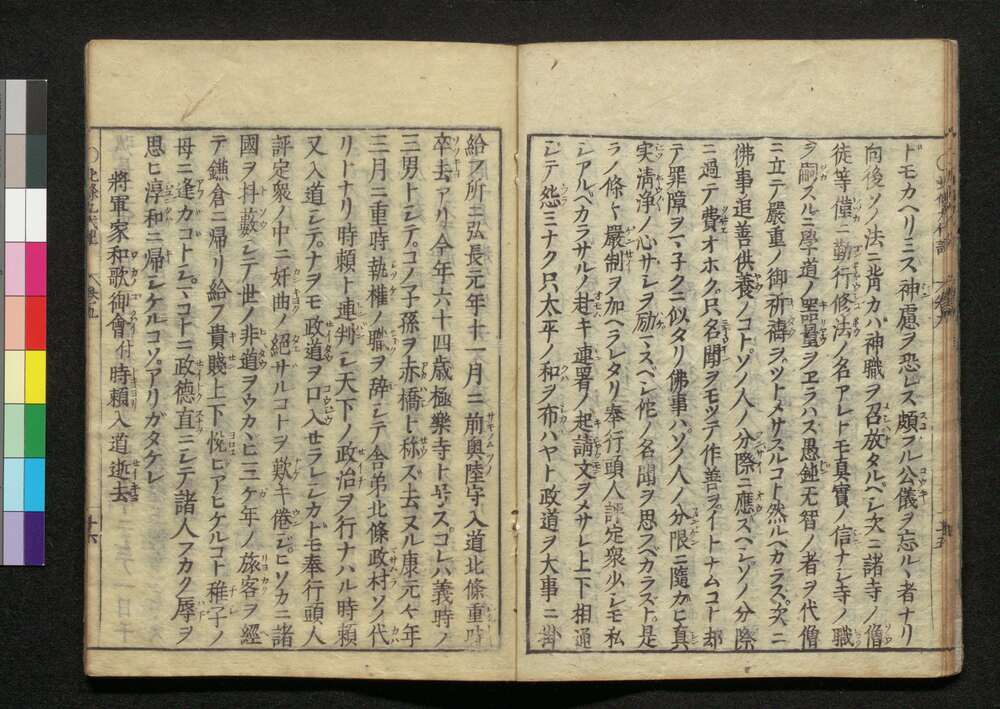 トモカヘリミス神慮ヲ恐レス頗フル公儀ヲ忘ルヽ者ナリ
向後ソノ法ニ背カバ神職ヲ召放タルベシ次ニ諸寺ノ僧
徒等僅ニ勤行修法ノ名アレトモ真實ノ信ナレ寺ノ職
ヲ嗣スルニ學道ノ器量ヲヱラハス愚鈍无智ノ者ヲ代僧
ニ立テ嚴重ノ御祈禱ヲツトメサスルコト然ルヘカラス次ニ
佛事追善供養ノコトソノ人ノ分際ニ應スヘシソノ分際
ニ過テ費オホク只名聞ヲモツテ作善ヲイトナムコト却
テ罪障ヲマ子クニ似タリ佛事ハソノ人ノ分限ニ隨カヒ真
実清浄ノ心ザシヲ励マスベシ他ノ名聞ヲ思フベカラズト是
ラノ條々嚴制ヲ加ヘラレタリ奉行頭人評定衆少シモ私
シアルベカラザルノ赴キ連署ノ起請文ヲメサレ上下相通
シテ怨ミナク只太平ノ和ヲ布ハヤト政道ヲ大事ニ
給フ所ニ弘長元年十一月ニ前奥陸守入道北條重時
卒去アリ今年六十四歳極樂寺ト号スコレハ義時ノ
三男トシテコノ子孫ヲ赤橋ト称ス去ヌル康元々年
三月ニ重時執權ノ職ヲ辞シテ舎弟北條政村ソノ代
リトナリ時頼ト連判シ天下ノ政治ヲ行ナハル時頼
又入道シテナヲモ政道ヲロ入セラレシカドモ奉行頭人
評定衆ノ中ニ奸曲ノ絶サルコトヲ歎キ倦ジヒソカニ諸
國ヲ抖擻シテ世ノ非道ヲウカヽヒ三ケ年ノ旅客ヲ經
テ鎌倉ニ歸リ給フ貴賤上下悦ヒアヒケルコト稚子ノ
母ニ逢カコトシマコトニ政徳直ニシテ諸人フカク辱ヲ
思ヒ淳和ニ帰シケルコソアリガタケレ
將軍家和歌御會付時頼入道逝去